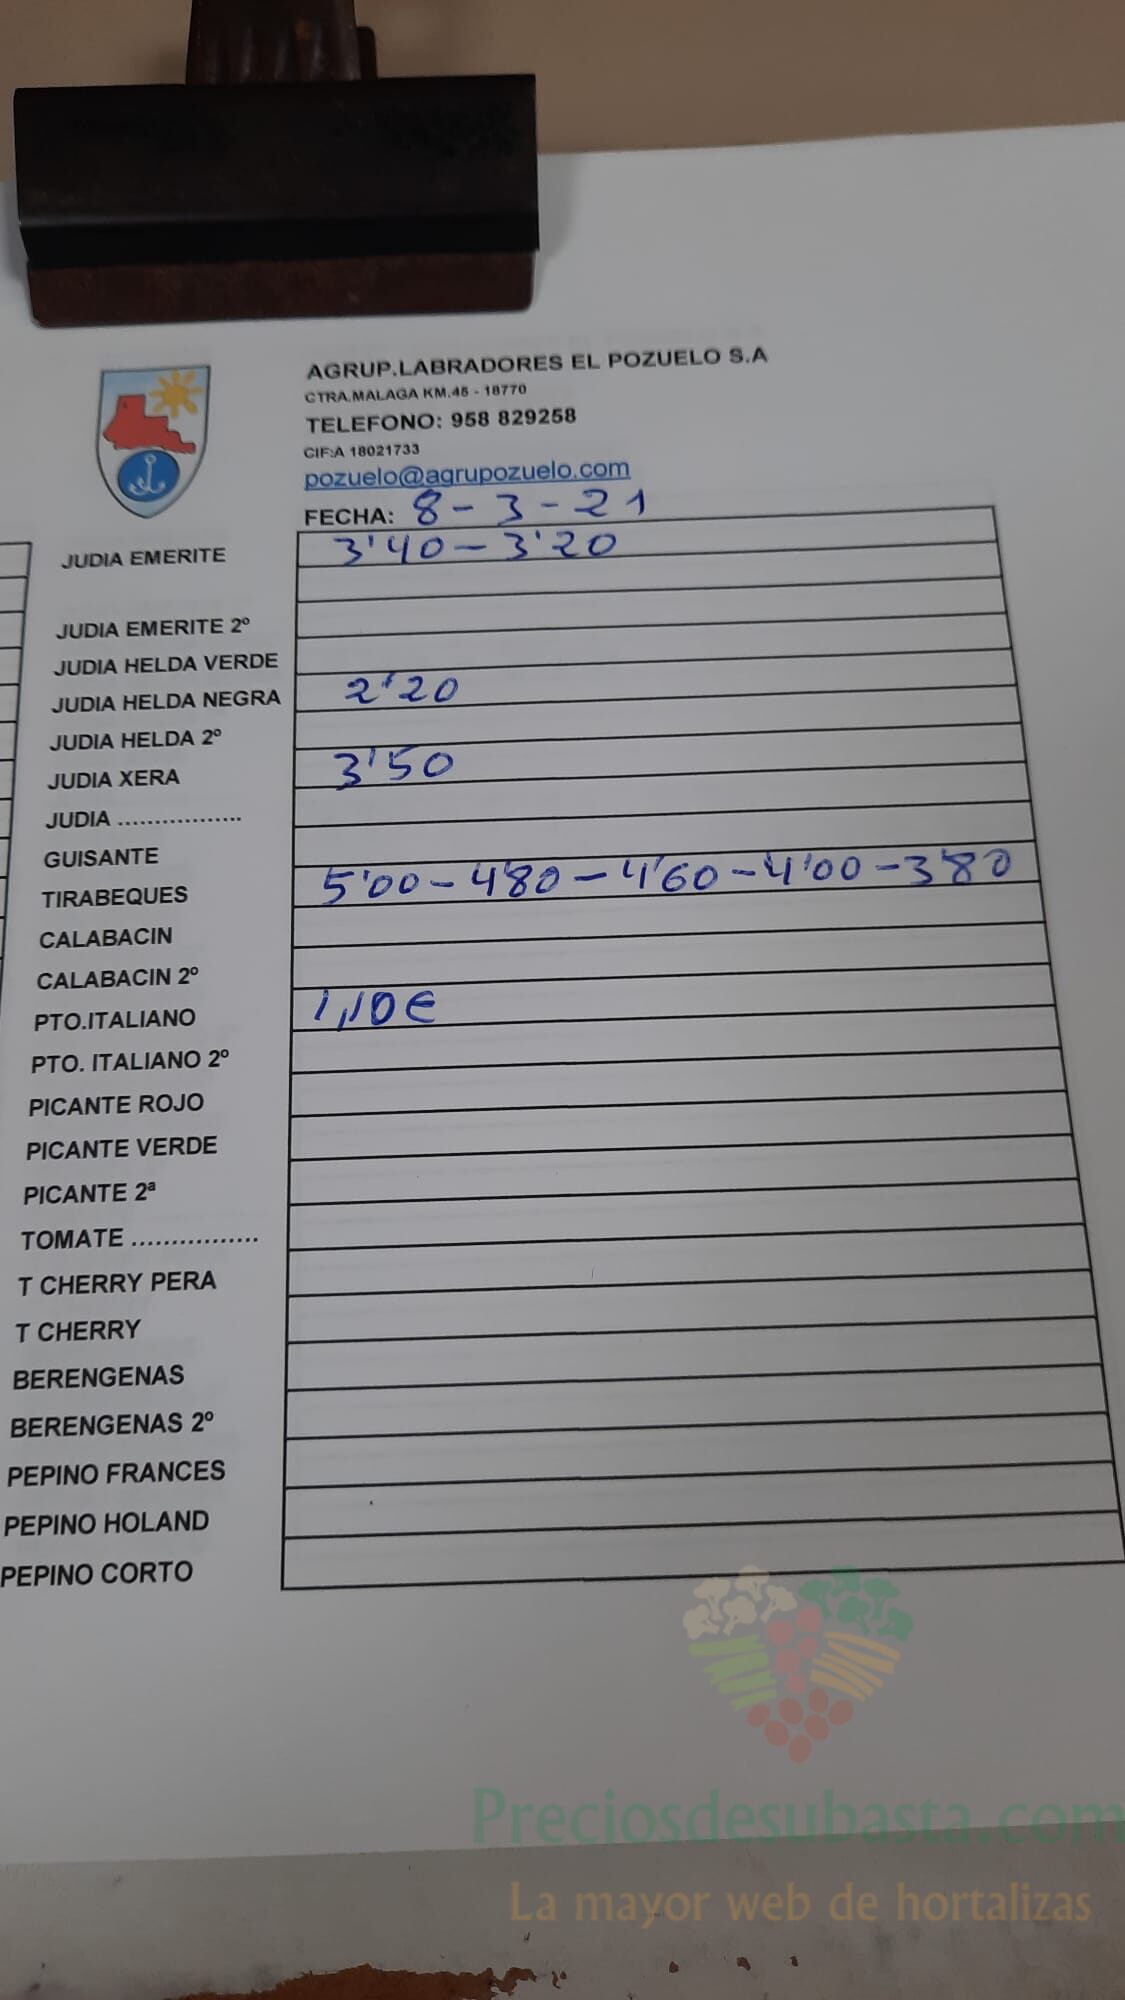 AGRUP.LABRADORES EL POZUELO S.A
CTRA.MALAGA KM.45 - 18770
TELEFONO: 958 829258
CIF:A 18021733
pozuelo@agrupozuelo.com
FECHA: 8-3-21
JUDIA EMERITE 3'40-3'20
JUDIA EMERITE 2º
JUDIA HELDA VERDE
JUDIA HELDA NEGRA 2'20
JUDIA HELDA 2º
JUDIA XERA 3'50
JUDIA .................
GUISANTE
TIRABEQUES 5'00-4'80-4'60-4'00-3'80
CALABACIN
CALABACIN 2º
PTO.ITALIANO 1,10€
PTO. ITALIANO 2º
PICANTE ROJO
PICANTE VERDE
PICANTE 2ª
TOMATE ................
T CHERRY PERA
T CHERRY
BERENGENAS
BERENGENAS 2º
PEPINO FRANCES
PEPINO HOLAND
PEPINO CORTO
Preciosdesubasta.com
La mayor web de hortalizas